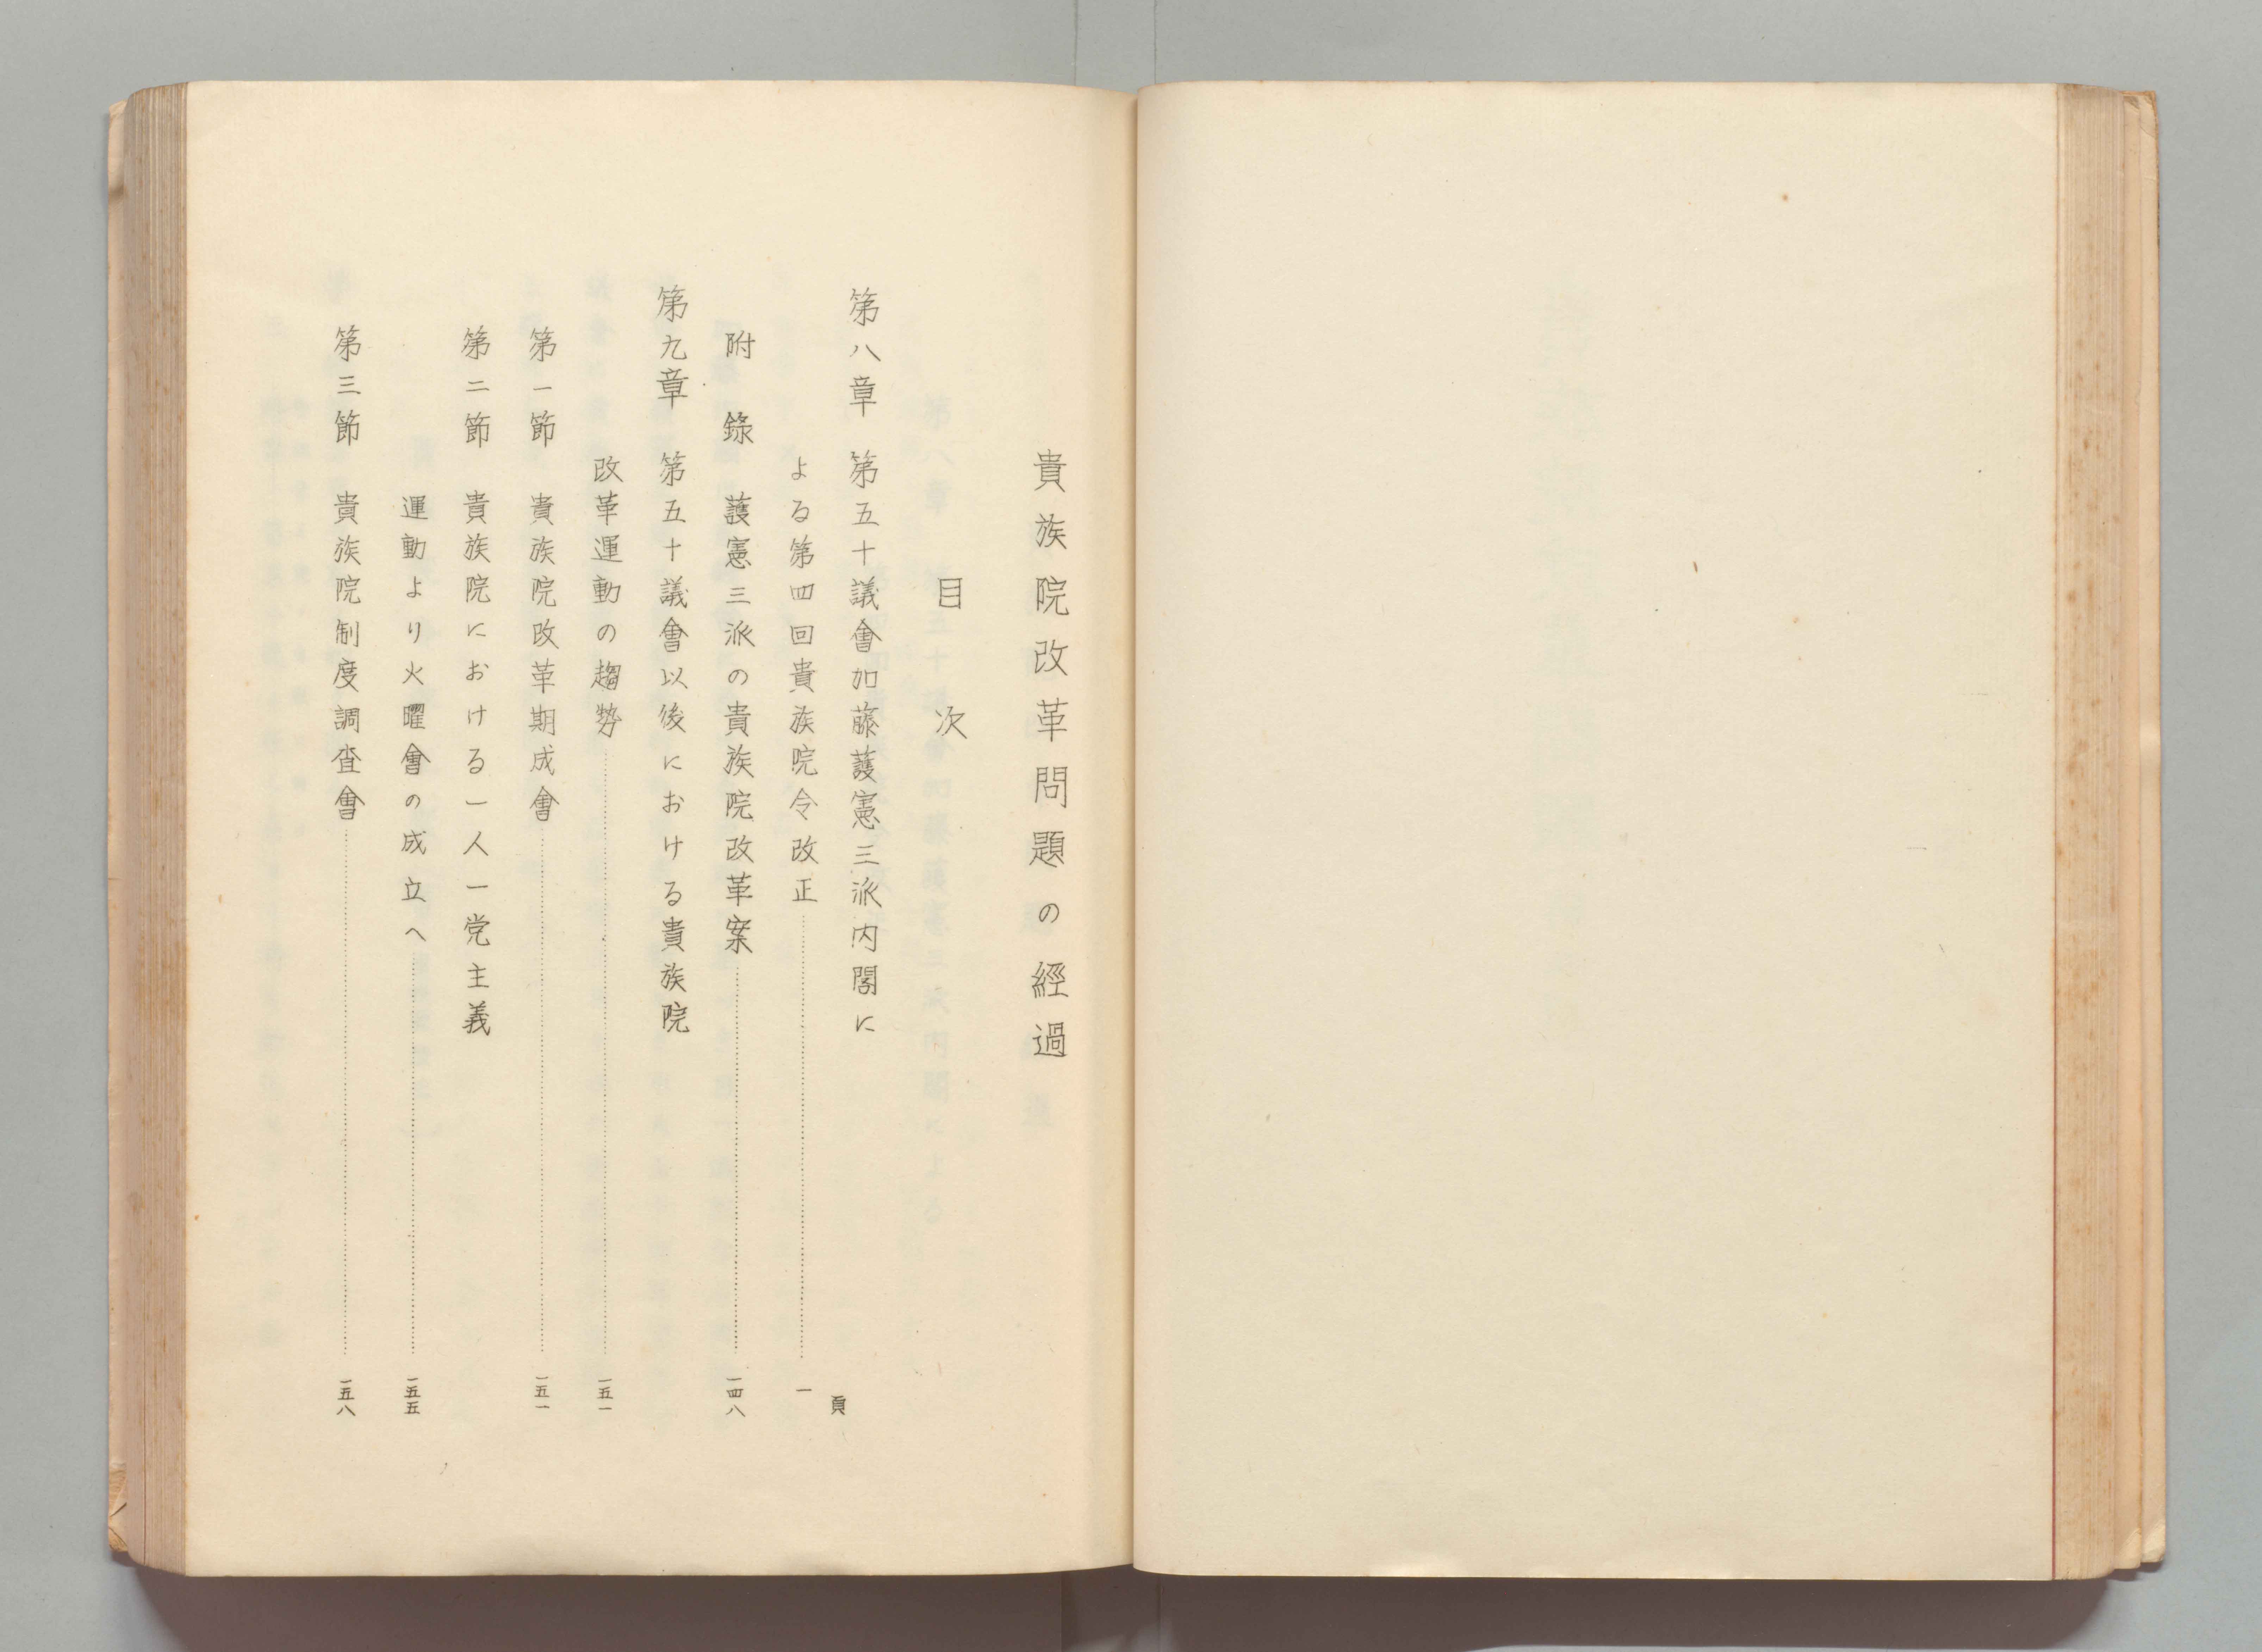 貴族院改革問題の經過
目次
第八章 第五十議會加藤護憲三派内閣に
頁
よる第四回貴族院令改正……一
附錄 護憲三派の貴族院改革案……一四八
第九章 第五十議會以後における貴族院
改革運動の趨勢……一五一
第一節 貴族院改革期成會……一五一
第二節 貴族院における一人一党主義
運動より火曜會の成立へ……一五五
第三節 貴族院制度調査會……一五八